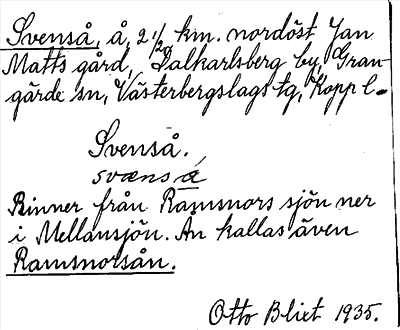 Svenså, å, 2 1/2 km. nordöst Jan
Matts gård, Dalkarlsberg by, Gran-
gärde sn, Västerbergslags tg, Koppl.
Svenså.
svæns å
Rinner från Ramsnors sjön ner
i Mellansjön. Ån kallas även
Ramsnorsån.
Otto Blixt 1935.